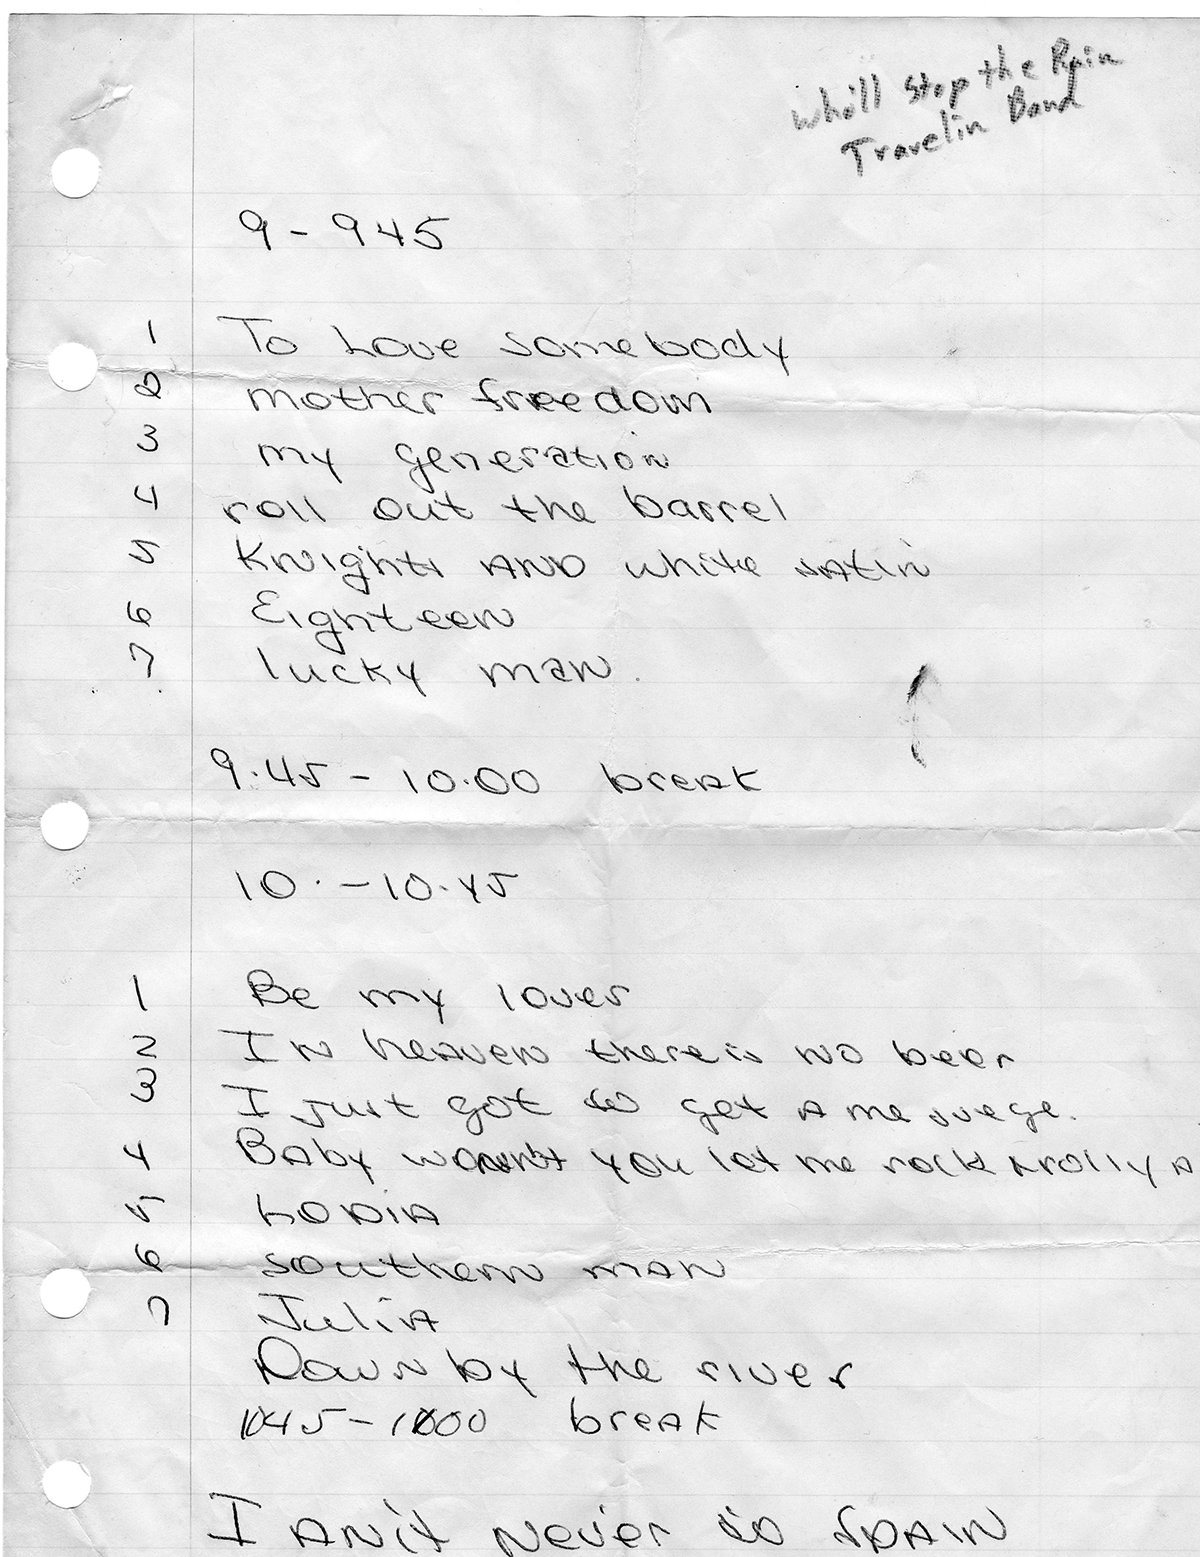 Who'll Stop the Rain
Travelin Band
9 - 945
1 To Love Somebody
2 mother freedom
3 my generation
4 roll out the barrel
5 Knights AND white satin
6 Eighteen
7 lucky man.
9.45 - 10.00 break
10. - 10.45
1 Be my lover
2 In heaven there is no beer
3 I just got to get a message.
4 Baby won't you let me rock & roll ya
5 LODIA
6 southern man
7 Julia
Down by the river
1045 - 1100 break
I Ani't never to SPAIN